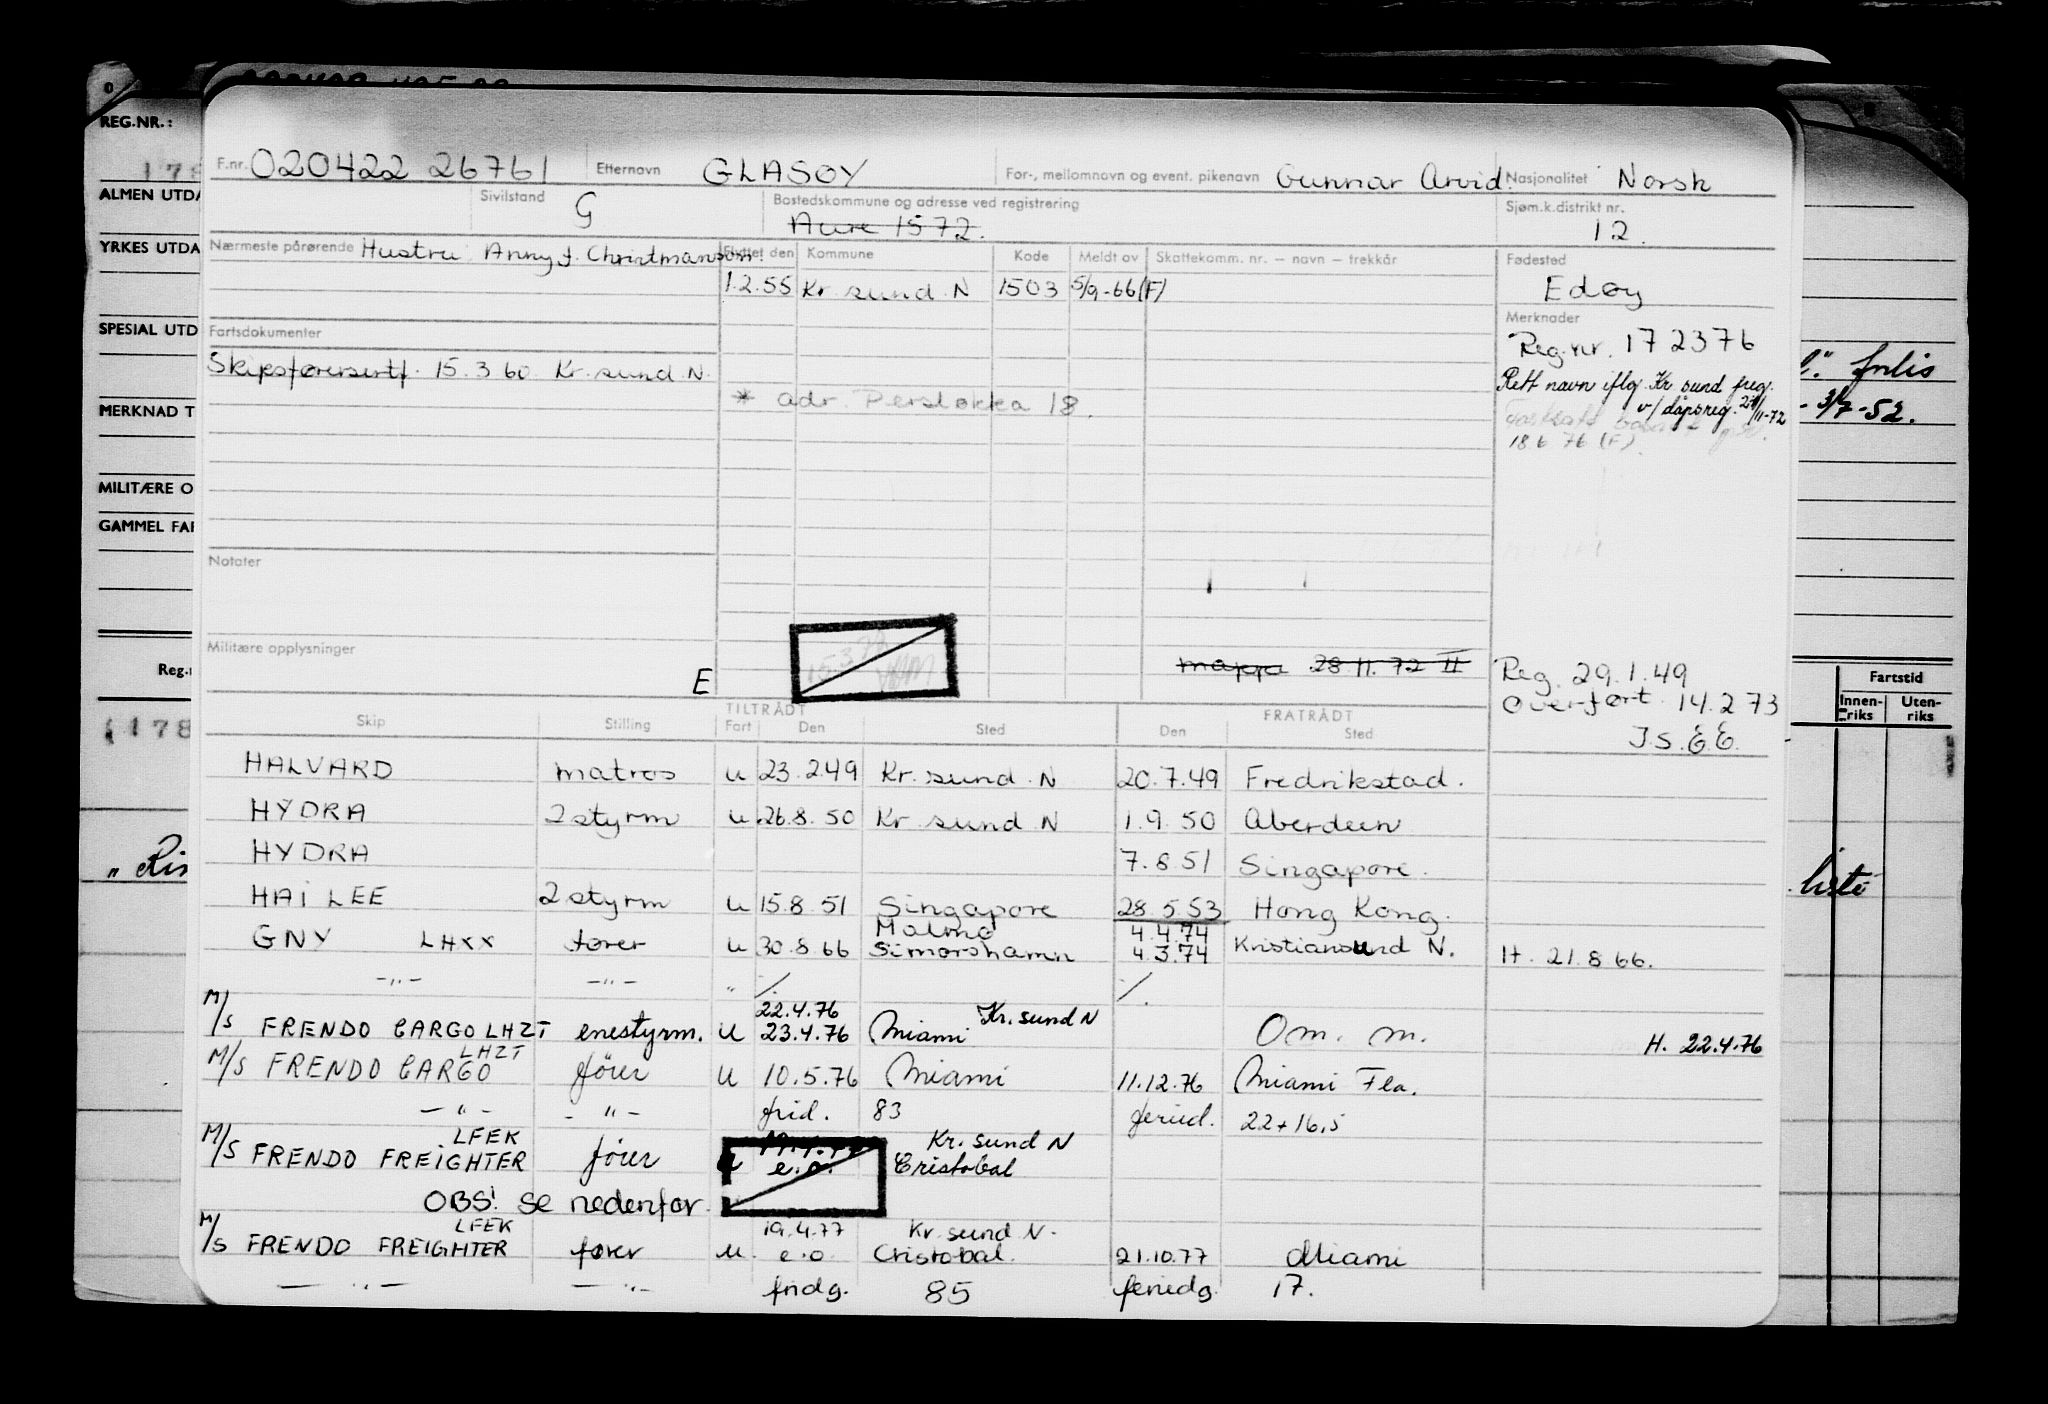 REG.NR.:
F.nr. 020422 26761 Etternavn GLASØY For-, mellomnavn og event. pikenavn Gunnar Arvid. Nasjonalitet Norsk
ALMEN UTDA
Sivilstand G Bostedskommune og adresse ved registrering Sjøm.k.distrikt nr.
Aure 1572. 12.
YRKES UTDA
Nærmeste pårørende Hustru Anny f. Christmanson. Flyttet den Kommune Kode Meldt av Skattekomm. nr. – navn – trekkår Fødested
1.2.55 Kr. sund. N 1503 5/9-66 (F) Edøy
Merknader
SPESIAL UTD
Fartsdokumenter
Reg.nr. 172376
Skipsførersertf. 15.3 60. Kr. sund. N.
Rett navn iflg Kr sund freg.
* adr. Persløkka 18. v/dåpsreg. 21/11-72
18 6 76 (F)
MERKNAD T
- 3/7-52.
MILITÆRE O
GAMMEL FAR
Notater
Militære opplysninger
E
mappe 28.11.72 II
Reg. 29.1.49
Overført 14.2 73
J.S.E.E.
Fartstid
Innen-riks Uten-riks
178
TILTRÅDT FRATRÅDT
Skip Stilling Fart Den Sted Den Sted
HALVARD matros u 23.2.49 Kr. sund. N 20.7.49 Fredrikstad.
HYDRA 2 styrm u 26.8.50 Kr sund N 1.9.50 Aberdeen
HYDRA 7.8.51 Singapore.
„ Ris liste
HAI LEE 2 styrm u 15.8.51 Singapore 28.5.53 Hong Kong.
Malmø 4.4.74
GNY LHXX fører u 30.8.66 Simorshamn 4.3.74 Kristiansund N. H. 21.8.66.
-„- -„- „ /. /.
22.4.76 Kr. sund N
M/S FRENDO CARGO LHZT enestyrm. U 23.4.76 Miami Om. m. H. 22.4.76
LHZT
M/S FRENDO CARGO fører U 10.5.76 Miami 11.12.76 Miami Fla.
-„- -„- frid. 83 feried. 22+16,5
LFEK Kr. sund N
M/S FRENDO FREIGHTER fører u e.o. Cristobal
OBS! se nedenfor.
LFEK 19.4.77 Kr. sund N.
M/S FRENDO FREIGHTER fører u. e.o. Cristobal. 21.10.77 Miami
-„- -„- fridg. 85 feriedg. 17.